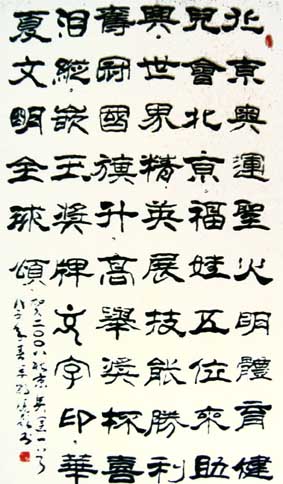 北京奧運聖火明體育健
兒會北京福娃五位來助
興世界精英展技能勝利
奪冠國旗升高舉獎杯喜
泪縱嵌玉獎牌文字印華
夏文明全球頌
賀二〇〇八北京奥运
戊子年春